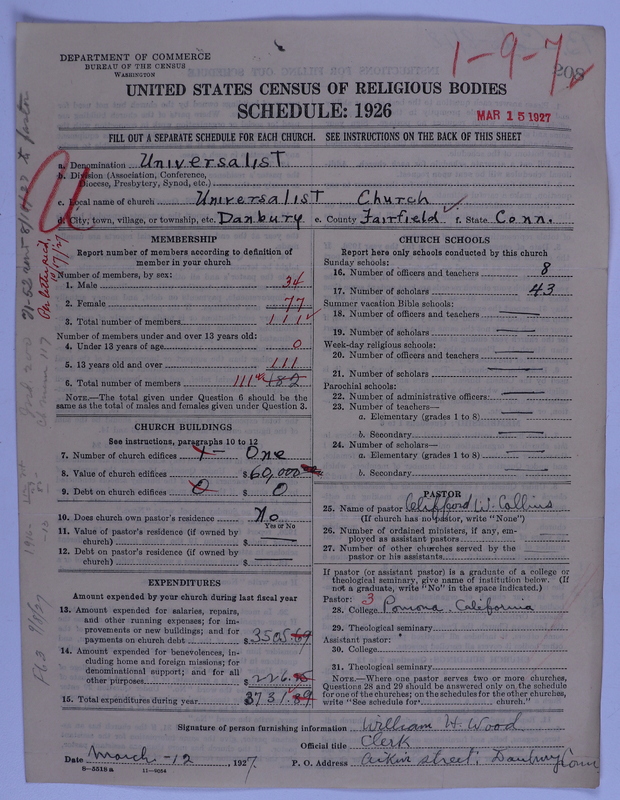 DEPARTMENT OF COMMERCE
BUREAU OF THE CENSUS
WASHINGTON
1-9-7
208
UNITED STATES CENSUS OF RELIGIOUS BODIES
SCHEDULE: 1926
MAR 15 1927
FILL OUT A SEPARATE SCHEDULE FOR EACH CHURCH. SEE INSTRUCTIONS ON THE BACK OF THIS SHEET
a. Denomination Universalist
b. Division (Association, Conference, Diocese, Presbytery, Synod, etc.)
c. Local name of church Universalist Church
d. City, town, village, or township, etc. Danbury e. County Fairfield f. State Conn.
MEMBERSHIP
Report number of members according to definition of member in your church
Number of members, by sex:
1. Male 34
2. Female 77
3. Total number of members 111
Number of members under and over 13 years old:
4. Under 13 years of age 0
5. 13 years old and over 111
6. Total number of members 111 182
NOTE.—The total given under Question 6 should be the same as the total of males and females given under Question 3.
CHURCH BUILDINGS
See instructions, paragraphs 10 to 12
7. Number of church edifices 1 - One
8. Value of church edifices $ 60,000
9. Debt on church edifices 0 $ 0
10. Does church own pastor's residence No
Yes or No
11. Value of pastor's residence (if owned by church) $
12. Debt on pastor's residence (if owned by church) $
EXPENDITURES
Amount expended by your church during last fiscal year
13. Amount expended for salaries, repairs, and other running expenses; for improvements or new buildings; and for payments on church debt $ 3505
14. Amount expended for benevolences, including home and foreign missions; for denominational support; and for all other purposes $ 226
15. Total expenditures during year 3731
CHURCH SCHOOLS
Report here only schools conducted by this church
Sunday schools:
16. Number of officers and teachers 8
17. Number of scholars 43
Summer vacation Bible schools:
18. Number of officers and teachers
19. Number of scholars
Week-day religious schools:
20. Number of officers and teachers
21. Number of scholars
Parochial schools:
22. Number of administrative officers:
23. Number of teachers—
a. Elementary (grades 1 to 8)
b. Secondary
24. Number of scholars—
a. Elementary (grades 1 to 8)
b. Secondary
PASTOR
25. Name of pastor Clifford W. Collins
(If church has no pastor, write "None")
26. Number of ordained ministers, if any, employed as assistant pastors
27. Number of other churches served by the pastor or his assistants
If pastor (or assistant pastor) is a graduate of a college or theological seminary, give name of institution below. (If not a graduate, write "No" in the space indicated.)
Pastor: 3
28. College Pomona. California
29. Theological seminary
Assistant pastor:
30. College
31. Theological seminary
NOTE.—Where one pastor serves two or more churches, Questions 28 and 29 should be answered only on the schedule for one of the churches; on the schedules for the other churches, write "See schedule for church."
Signature of person furnishing information William H. Wood
Official title Clerk
Date March-12, 1927.
P. O. Address Aikin street. Danbury Conn
8—5518 a 11—9054